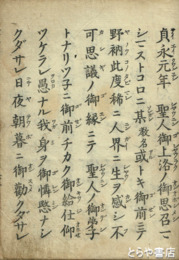 貞永元年 聖人御上洛ノ御思召ニテ
シニストコロニ某数名或トキ御前ニテ
野納此度稀ニ人界ニ生ヲ感シ不
可思議ノ御縁ニテ聖人ノ御弟子
トナリツ子ニ御前チカク御給仕仰
ツケラレ愚ナル我身ヲ御憐愍ナシ
クダサレ日夜朝暮ニ御勧クダサレ
とらや書店